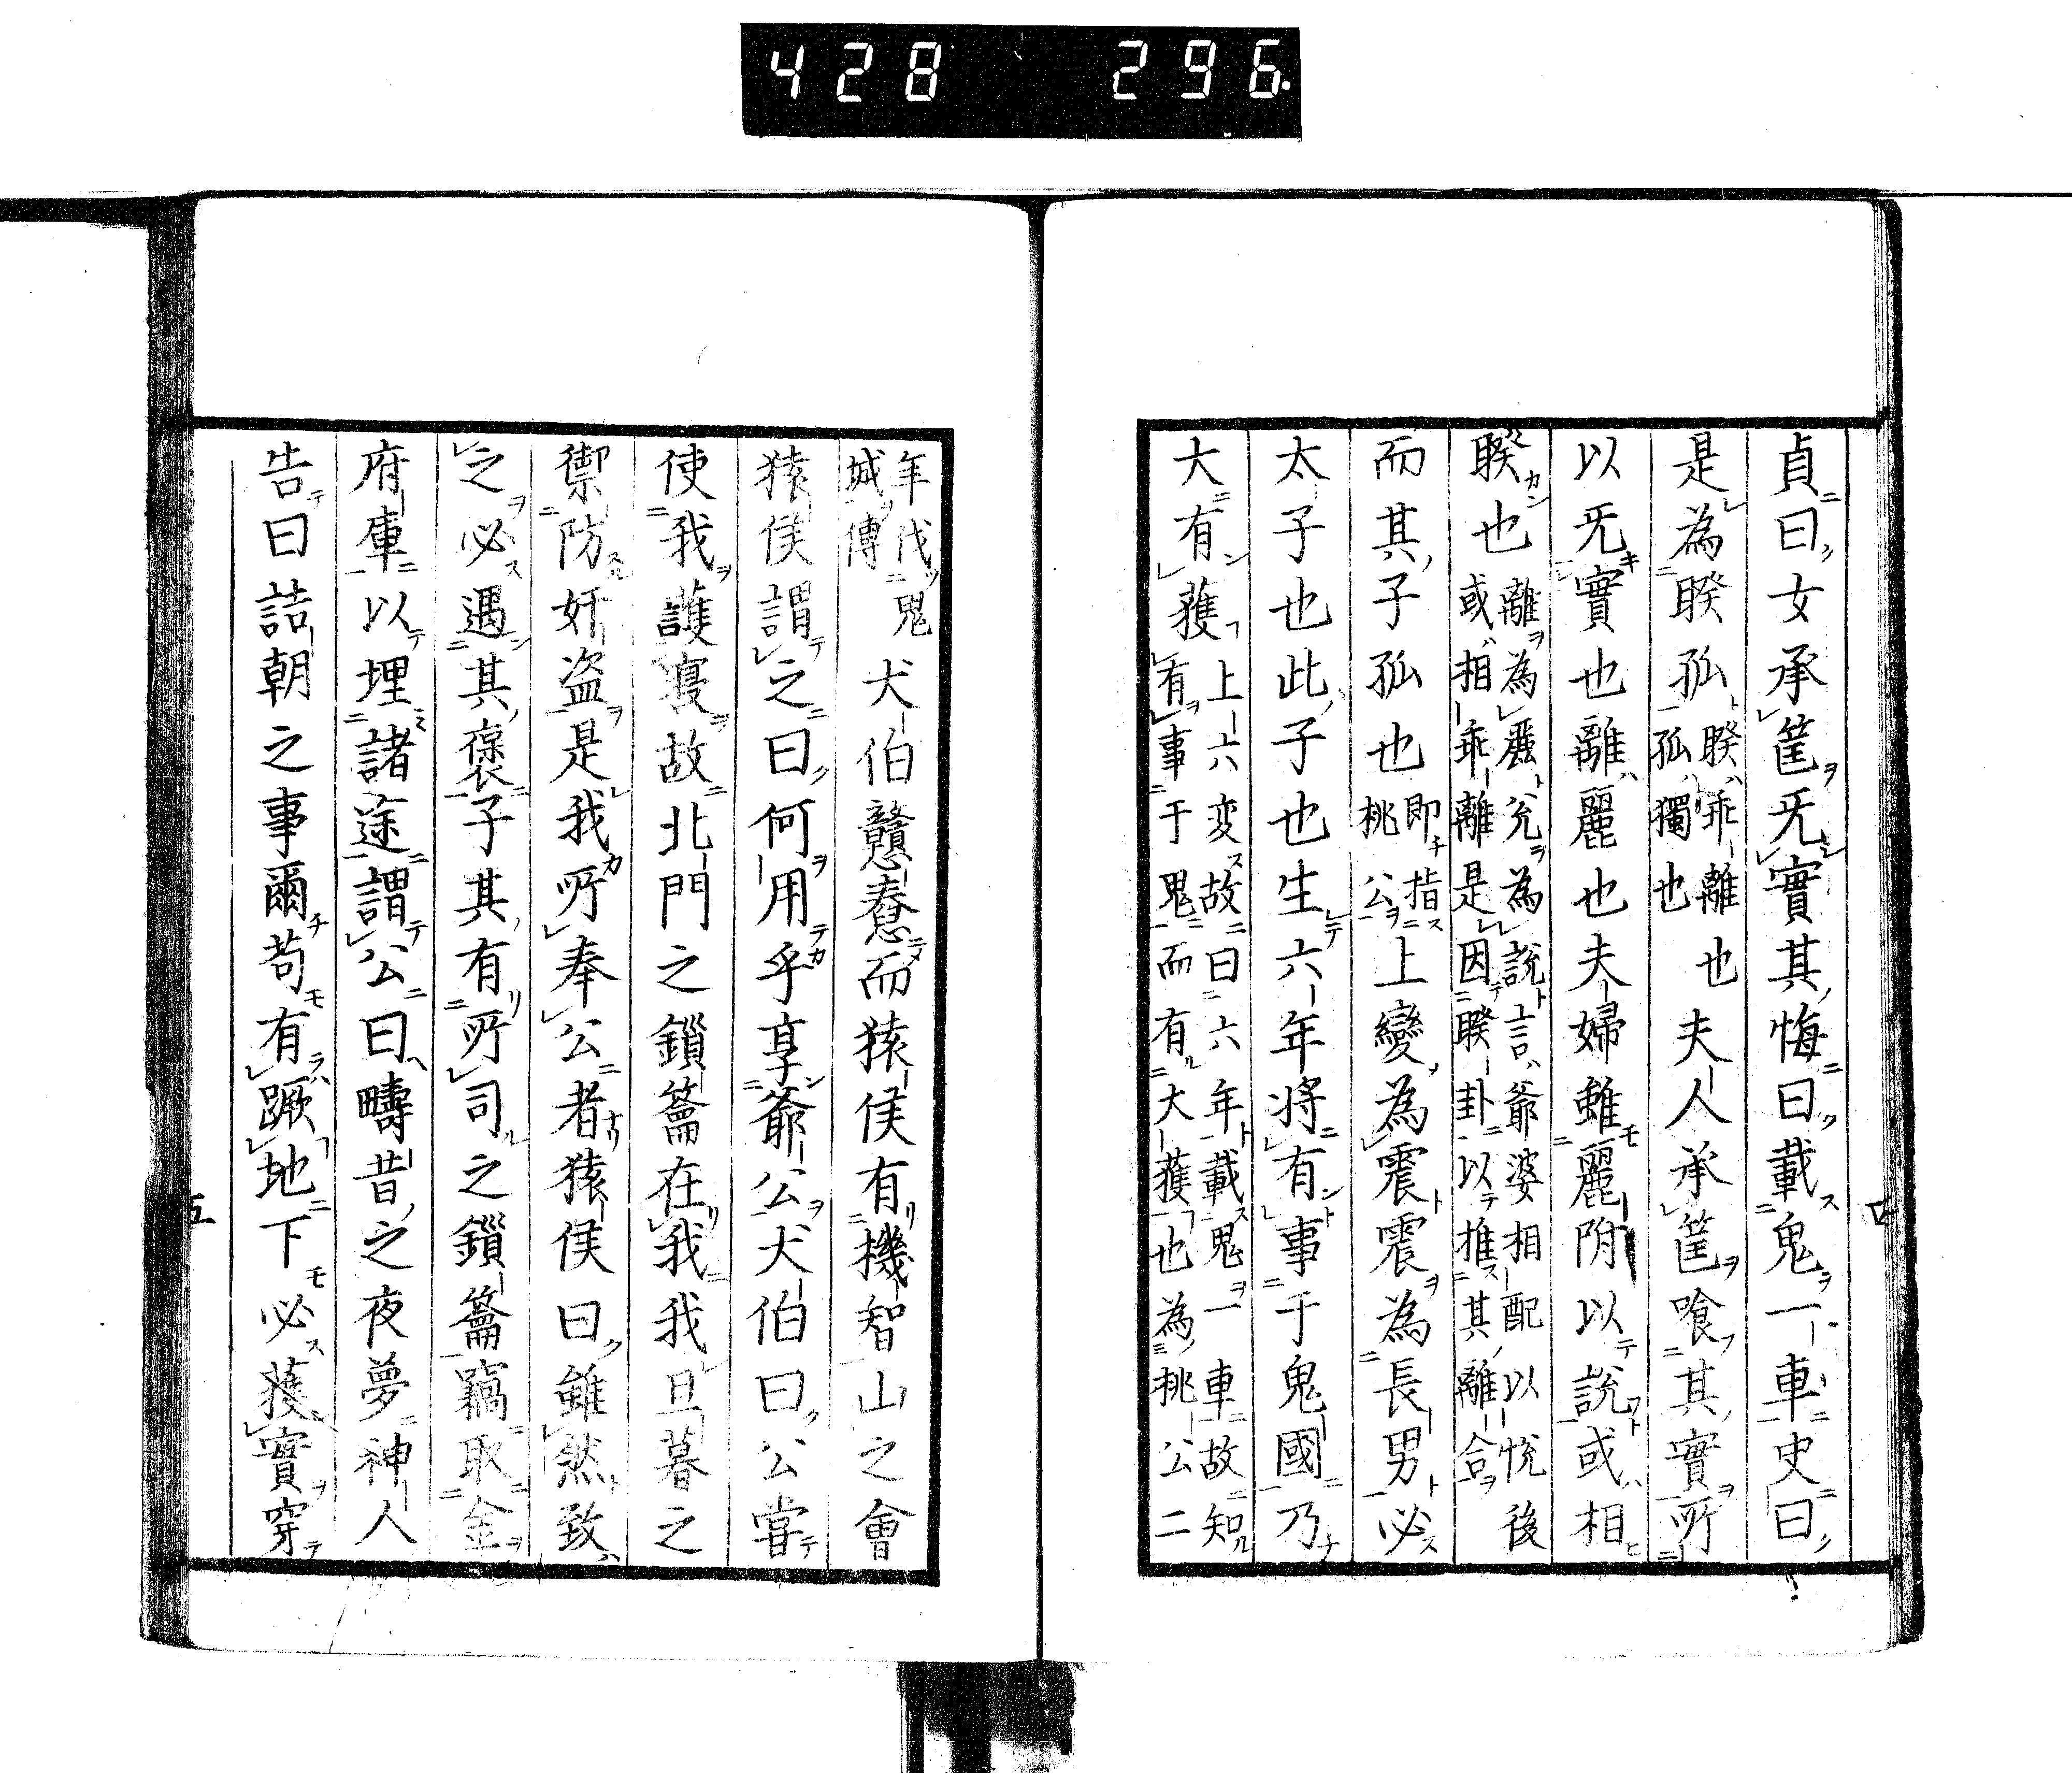 428 296.
貞曰女承筐旡實其悔曰載鬼一車史曰
是為睽孤睽乖離也孤獨也夫人承筐喰其實所
以旡實也離麗也夫婦雖麗陰以說或相
睽也離為麗兊為說言爺婆相配以悅後或相乖離是因睽卦以推其離合
而其子孤也即指桃公上變為震震為長男必
太子也此子也生六年将有事于鬼國乃
大有獲上六変故曰六年載鬼一車故知有事于鬼而有大獲也為桃公二
年伐鬼城傳犬伯戇憃而猿侯有機智山之會
猿侯謂之曰何用乎享爺公犬伯曰公嘗
使我護寝故北門之鎻籥在我我旦暮之
禦防奸盗是我所奉公者猿侯曰雖然致
之必遇其褒子其有所司之鎻籥竊取金
府庫以埋諸途謂公曰疇昔之夜夢神人
告曰詰朝之事爾苟有蹶地下必獲實穿
五